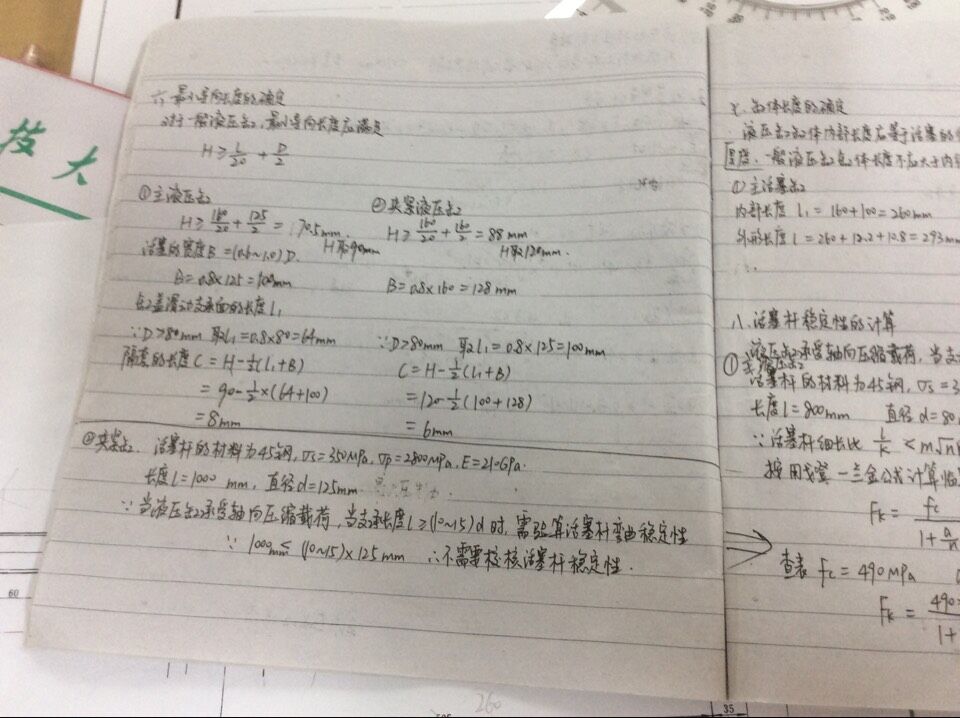 技大
六、最小导向长度的确定
对于一般液压缸,最小导向长度应满足
H≥L/20+D/2
①主液压缸
H≥160/20+125/2=70.5mm. H取90mm
活塞的宽度B=(0.6~1.0)D.
B=0.8×125=100mm
缸盖滑动支承面的长度l₁
∵D>80mm 取l₁=0.8×80=64mm
隔套的长度C=H-½(l₁+B)
=90-½×(64+100)
=8mm
②夹紧液压缸
H≥160/20+160/2=88mm
H取120mm.
B=0.8×160=128mm
∵D>80mm 取l₁=0.8×125=100mm
C=H-½(l₁+B)
=120-½(100+128)
=6mm
②夹紧缸. 活塞杆的材料为45钢,σs=350MPa,σp=2800MPa,E=210GPa.
长度l=1000mm,直径d=125mm
∵当液压缸承受轴向压缩载荷,当支承长度l≥(10~15)d时,需验算活塞杆弯曲稳定性
∵1000mm≤(10~15)×125mm ∴不需要校核活塞杆稳定性.
七.缸体长度的确定
液压缸缸体内部长度应等于活塞的
厚度.一般液压缸缸体长度不应大于内
①主活塞缸
内部长度l₁=160+100=260mm
外形长度l=260+12.2+10.8=293mm
八.活塞杆稳定性的计算
液压缸承受轴向压缩载荷,当支
①主液压缸
活塞杆的材料为45钢,σs=3
长度l=800mm 直径d=80
∵活塞杆细长比 l/k<m√n
按用戈登—兰金公式计算临
Fk=fc
1+a/n
查表fc=490MPa
Fk=490
1+
60
35
260